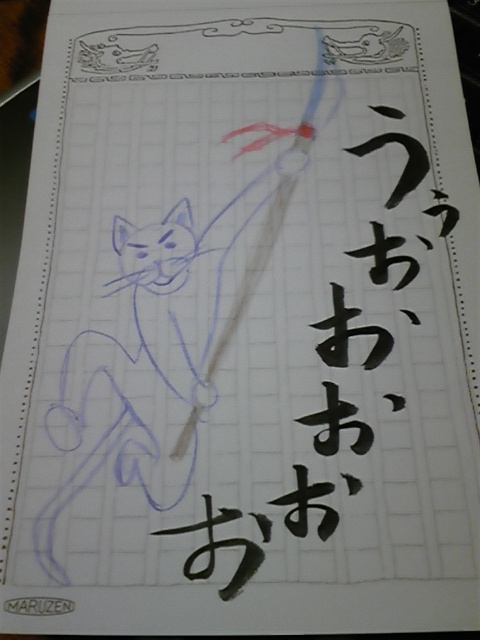 うぅおおおおお
MARUZEN